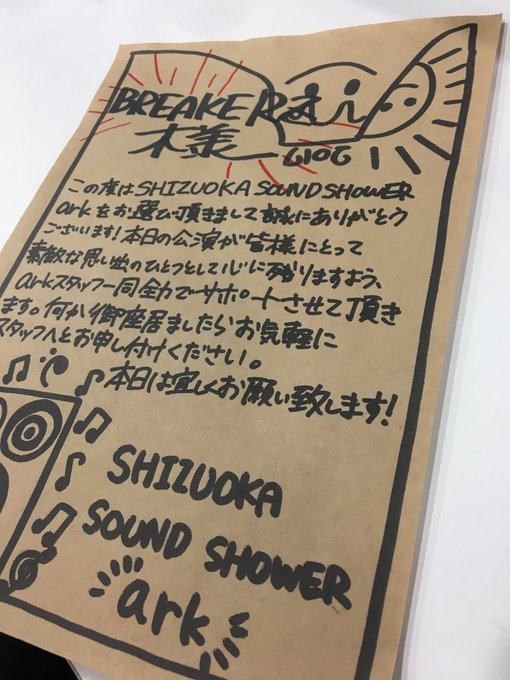 BREAKER
様
この度はSHIZUOKA SOUND SHOWER
arkをお選び頂きまして誠にありがとう
ございます!本日の公演が皆様にとって
素敵な思い出のひとつとして心に残りますよう、
arkスタッフ一同全力でサポートさせて頂き
ます。何か御座居ましたらお気軽に
スタッフへとお申し付けください。
本日は宜しくお願い致します!
SHIZUOKA
SOUND SHOWER
ark